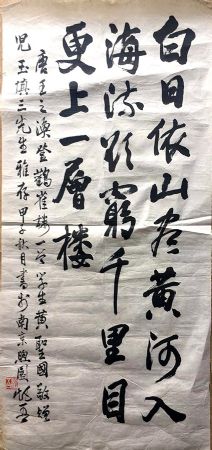 白日依山尽黄河入
海流欲窮千里目
更上一層楼
唐王之渙登鸛雀楼一首学生黄聖國敬贈
児玉慎三先生雅存甲子秋月書於南京